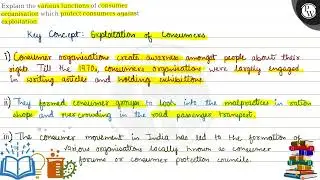 Explain the various functions of consumer
organisation which protect consumers against
exploitation.
Key Concept: Exploitation of Consumers
i) Consumer organisations create awarness amongst people about their
rights. Till the 1970s, consumer organisations were largely engaged
in writing articles and holding exhibitions.
ii) They formed consumer groups to look into the malpractices in ration
shops and overcrowding in the road passenger transport.
iii) The consumer movement in India has led to the formation of
various organisations locally known as consumer
forums or consumer protection councils.